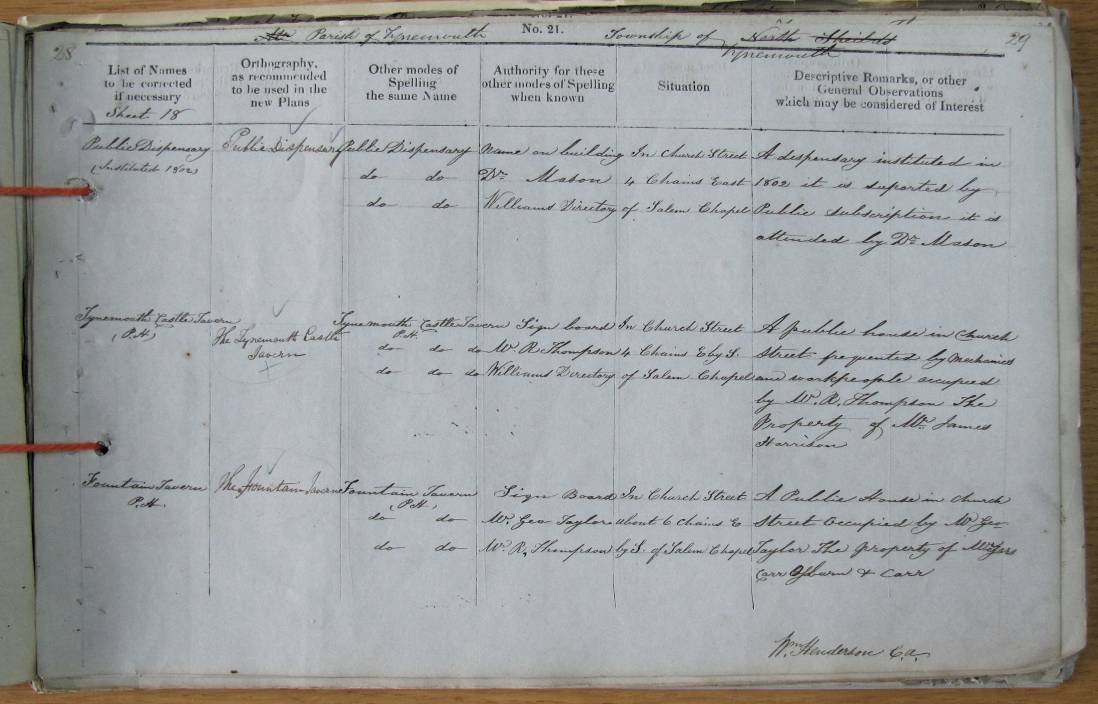 28
No. 21.
Parish of Tynemouth
Township of North Shields
Tynemouth
29
List of Names
to be corrected
if necessary
Sheet 18
Orthography,
as recommended
to be used in the
new Plans
Other modes of
Spelling
the same Name
Authority for these
other modes of Spelling
when known
Situation
Descriptive Remarks, or other
General Observations
which may be considered of Interest
Public Dispensary
(Instituted 1802)
Public Dispensary
Public Dispensary
do do
do do
Name on building
Dr. Mason
Williams Directory
In Church Street
4 Chains East
of Salem Chapel
A dispensary instituted in
1802 it is suported by
Public subscription it is
attended by Dr. Mason
Tynemouth Castle Tavern
(P.H)
The Tynemouth Castle
Tavern
Tynemouth Castle Tavern
P.H.
do do do
do do do
Sign board
Mr. R. Thompson
Williams Directory
In Church Street
4 Chains E by S.
of Salem Chapel
A public house in Church
Street frequented by Mechanics
and workpeople occupied
by Mr. R. Thompson The
Property of Mr. James
Harrison
Fountain Tavern
P.H.
The Fountain Tavern
Fountain Tavern
(P.H.)
do do
do do
Sign Board
Mr. Geo Taylor
Mr. R. Thompson
In Church Street
about 6 Chains E
by S. of Salem Chapel
A Public House in Church
Street Occupied by Mr Geo
Taylor The property of
Carr & Carr
Wm. Henderson C.a.